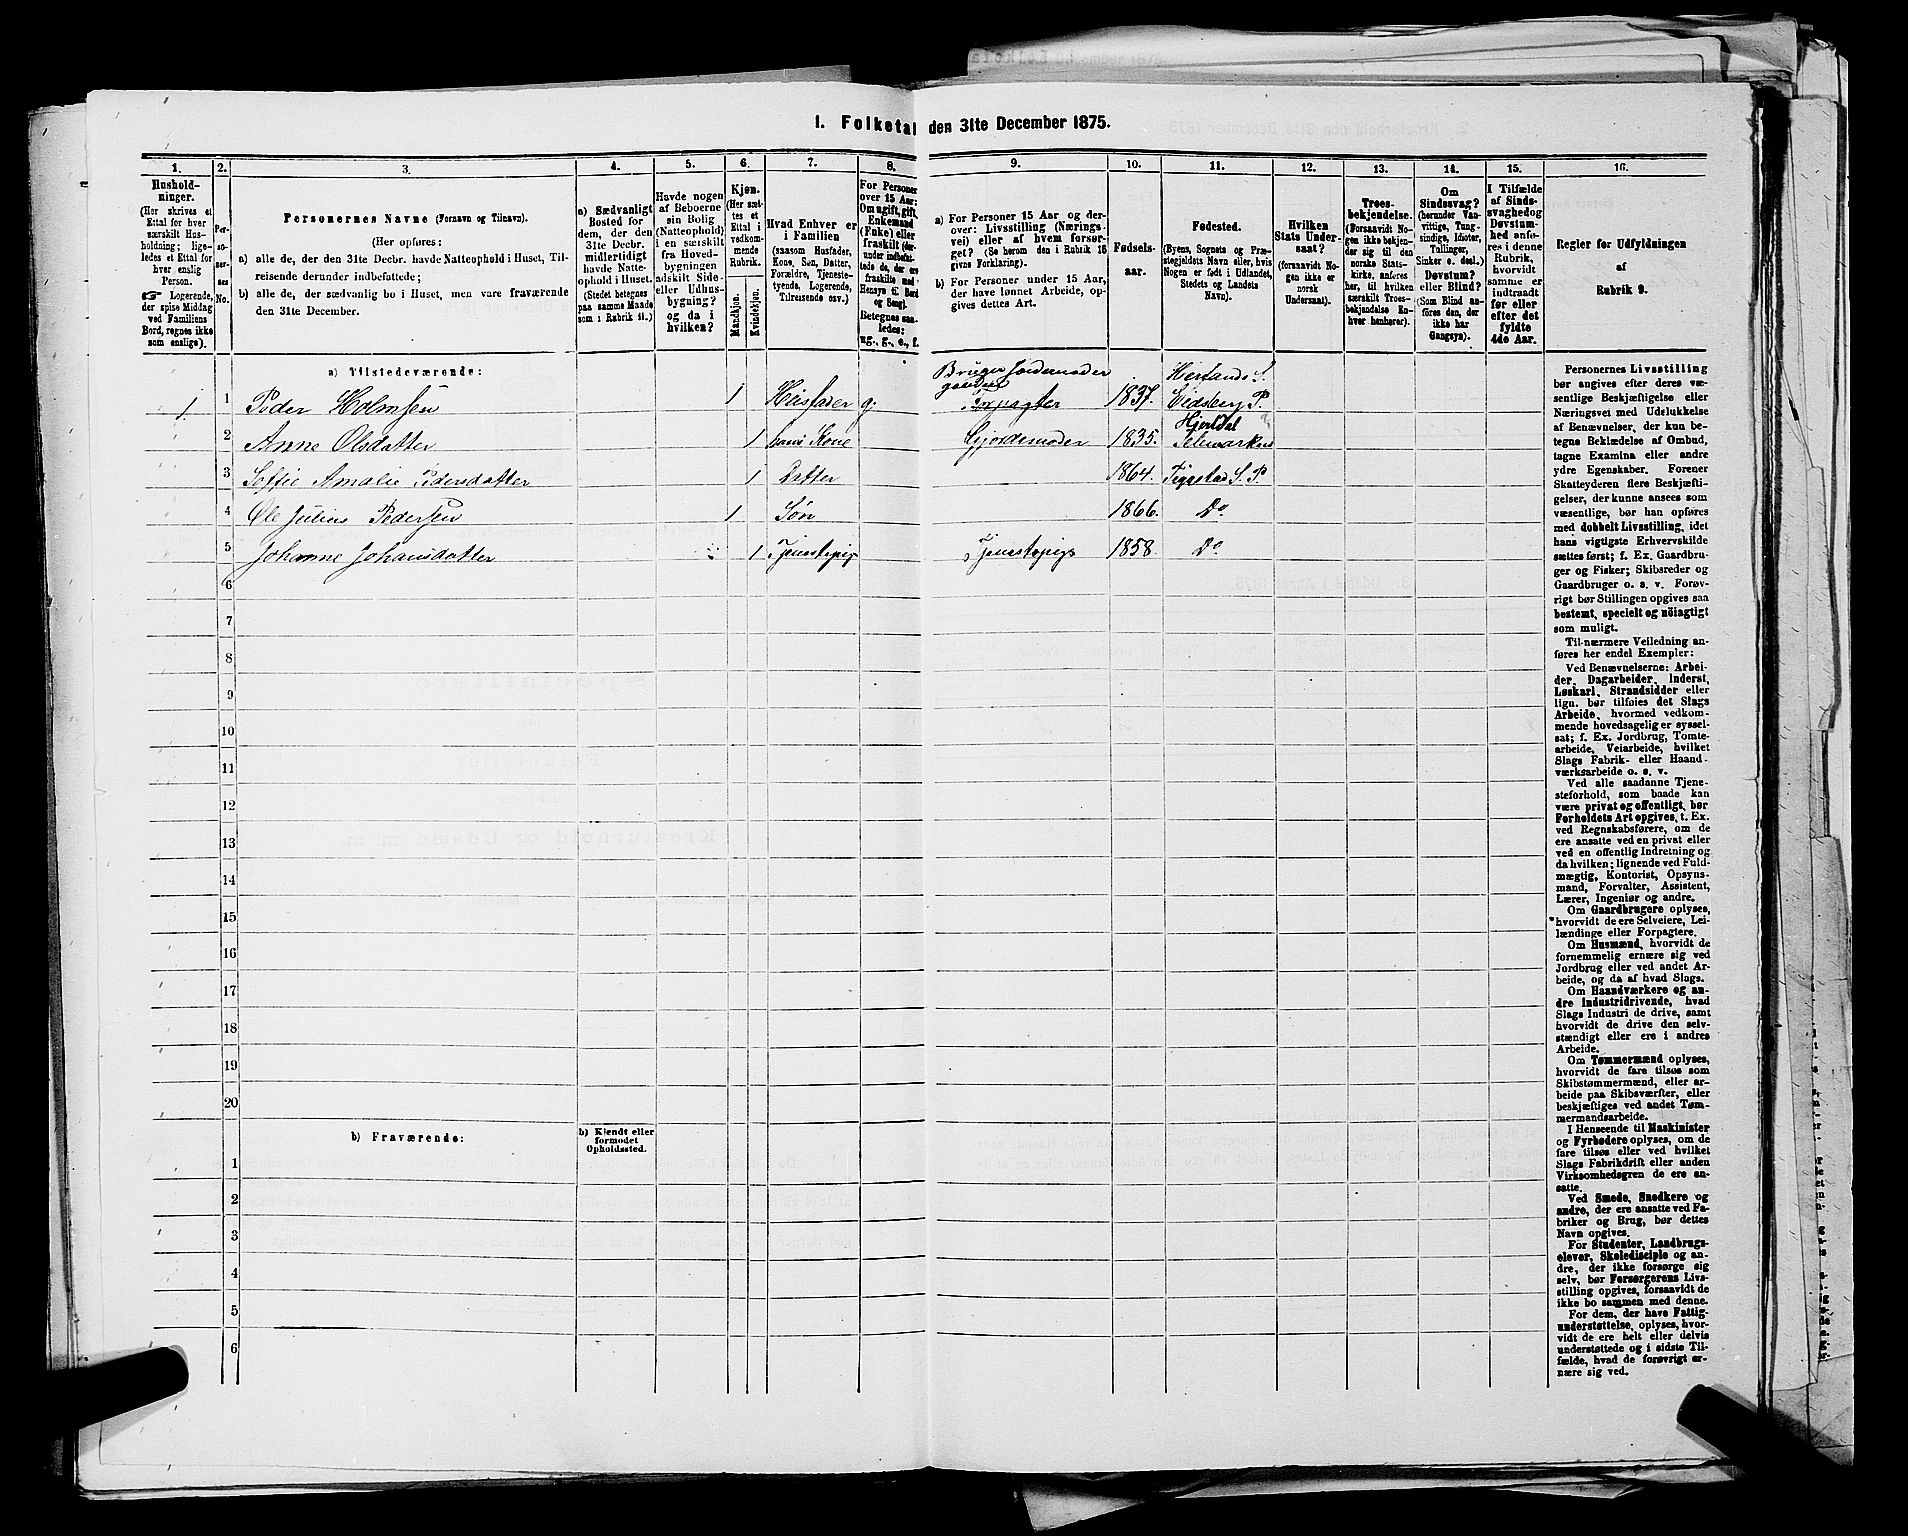 1. Folketal den 31te December 1875.
1.
2.
3.
4.
5.
6.
7.
8.
9.
10.
11.
12.
13.
14.
15.
16.
Hushold-
ninger.
(Her skrives et
Ettal for hver
særskilt Hus-
holdning; lige-
ledes et Ettal for
hver enslig
Person.
☞ Logerende,
der spise Middag
ved Familiens
Bord, regnes ikke
som enslige).
Per-
so-
ner-
nes
No.
Personernes Navne (Fornavn og Tilnavn).
(Her opføres:
a) alle de, der den 31te Decbr. havde Natteophold i Huset, Til-
reisende derunder indbefattede;
b) alle de, der sædvanlig bo i Huset, men vare fraværende
den 31te December.
a) Sædvanligt
Bosted for
dem, der den
31te Decbr.
midlertidigt
havde Natte-
ophold i Huset.
(Stedet betegnes
paa samme Maade
som i Rubrik 11.)
Havde nogen
af Beboerne
sin Bolig
(Natteophold)
i en særskilt
fra Hoved-
bygningen
adskilt Side-
eller Udhus-
bygning?
og da i
hvilken?
Kjøn.
(Her sæt-
tes et
Ettal i
vedkom-
mende
Rubrik.
Mandkjøn.
Kvindekjøn.
Hvad Enhver er
i Familien
(saasom Husfader,
Kone, Søn, Datter,
Forældre, Tjeneste-
tyende, Logerende,
Tilreisende osv.)
For Personer
over 15 Aar:
Om ugift, gift,
Enkemand
(Enke) eller
fraskilt (der-
under indbefat-
tede de, der ere
fraskilte med
Hensyn til Bord
og Seng).
Betegnes saa-
ledes:
ug., g., e., f.
a) For Personer 15 Aar og der-
over: Livsstilling (Nærings-
vei) eller af hvem forsør-
get? (Se herom den i Rubrik 16
givne Forklaring).
b) For Personer under 15 Aar,
der have lønnet Arbeide, op-
gives dettes Art.
Fødsels-
aar.
Fødested.
(Byens, Sognets og Præ-
stegjeldets Navn eller, hvis
Nogen er født i Udlandet,
Stedets og Landets
Navn).
Hvilken
Stats Under-
saat?
(forsaavidt No-
gen ikke er
norsk
Undersaat).
Troes-
bekjendelse.
(Forsaavidt No-
gen ikke bekjen-
der sig til den
norske Stats-
kirke, anføres
her, til hvilken
særskilt Troes-
bekjendelse En-
hver henhører).
Om
Sindssvag?
(herunder Van-
vittige, Tung-
sindige, Idioter,
Tullinger,
Sinker o. desl.)
Døvstum?
eller Blind?
(Som Blind an-
føres den, der
ikke har
Gangsyn).
I Tilfælde
af Sinds-
svaghed og
Døvstum-
hed anfø-
res i denne
Rubrik,
hvorvidt
samme er
indtraadt
før eller
efter det
fyldte
4de Aar.
Regler for Udfyldningen
af
Rubrik 9.
a) Tilstedeværende:
1 1 Peder Holmsen 1 Husfader g. Bruger Jordemoder gaarden Forpagter 1837. Hertands S. Eidsberg P.
2 Anne Olsdatter 1 hans Kone Gjordemoder 1835. Hjertdal Telemarken
3 Soffie Amalie Pedersdatter 1 Datter 1864. Tigstad S. P.
4 Ole Julius Pedersen 1 Søn 1866. Do.
5 Johanne Johansdatter 1 Tjenestepig Tjenestepige 1858. Do
6
7
8
9
10
11
12
13
14
15
16
17
18
19
20
b) Fraværende:
b) Kjendt eller
formodet
Opholdssted.
1
2
3
4
5
6
Personernes Livsstilling
bør angives efter deres væ-
sentlige Beskjæftigelse eller
Næringsvei med Udelukkelse
af Benævnelser, der kun be-
tegne Beklædelse af Ombud,
tagne Examina eller andre
ydre Egenskaber. Forener
Skatteyderen flere Beskjæfti-
gelser, der kunne ansees som
væsentlige, bør han opføres
med dobbelt Livsstilling, idet
hans vigtigste Erhvervskilde
sættes først; f. Ex. Gaardbru-
ger og Fisker; Skibsreder og
Gaardbruger o. s. v. Forøv-
rigt bør Stillingen opgives saa
bestemt, specielt og nöiagtigt
som muligt.
Til nærmere Veiledning an-
føres her endel Exempler:
Ved Benævnelserne: Arbei-
der, Dagarbeider, Inderst,
Løskarl, Strandsidder eller
lign. bør tilføies det Slags
Arbeide, hvormed vedkom-
mende hovedsagelig er syssel-
sat; f. Ex. Jordbrug, Tomte-
arbeide, Veiarbeide, hvilket
Slags Fabrik- eller Haand-
værksarbeide o. s. v.
Ved alle saadanne Tjene-
steforhold, som baade kan
være privat og offentligt, bør
Forholdets Art opgives, t. Ex.
ved Regnskabsførere, om de
ere ansatte ved en privat eller
ved en offentlig Indretning og
da hvilken; lignende ved Fuld-
mægtig, Kontorist, Opsyns-
mand, Forvalter, Assistent,
Lærer, Ingeniør og andre.
Om Gaardbrugere oplyses,
hvorvidt de ere Selveiere, Lei-
lændinge eller Forpagtere.
Om Husmænd, hvorvidt de
fornemmelig ernære sig ved
Jordbrug eller ved andet Ar-
beide, og da af hvad Slags.
Om Haandværkere og an-
dre Industridrivende, hvad
Slags Industri de drive, samt
hvorvidt de drive den selv-
stændigt eller ere i andres
Arbeide.
Om Tømmermænd oplyses,
hvorvidt de fare tilsøs som
Skibstømmermænd, eller ar-
beide paa Skibsværfter, eller
beskjæftiges ved andet Tøm-
mermandsarbeide.
I Henseende til Maskinister
og Fyrbødere oplyses, om de
fare tilsøs eller ved hvilket
Slags Fabrikdrift eller anden
Virksomhedsgren de ere an-
satte.
Ved Smede, Snedkere og
andre, der ere ansatte ved Fa-
briker og Brug, bør dettes
Navn opgives.
For Studenter, Landbrugs-
elever, Skoledisciple og an-
dre, der ikke forsørge sig
selv, bør Forsørgerens Livs-
stilling opgives, forsaavidt de
ikke bo sammen med denne.
For dem, der have Fattig-
understøttelse, oplyses, hvor-
vidt de ere helt eller delvis
understøttede og i sidste Til-
fælde, hvad de forøvrigt er-
nære sig ved.